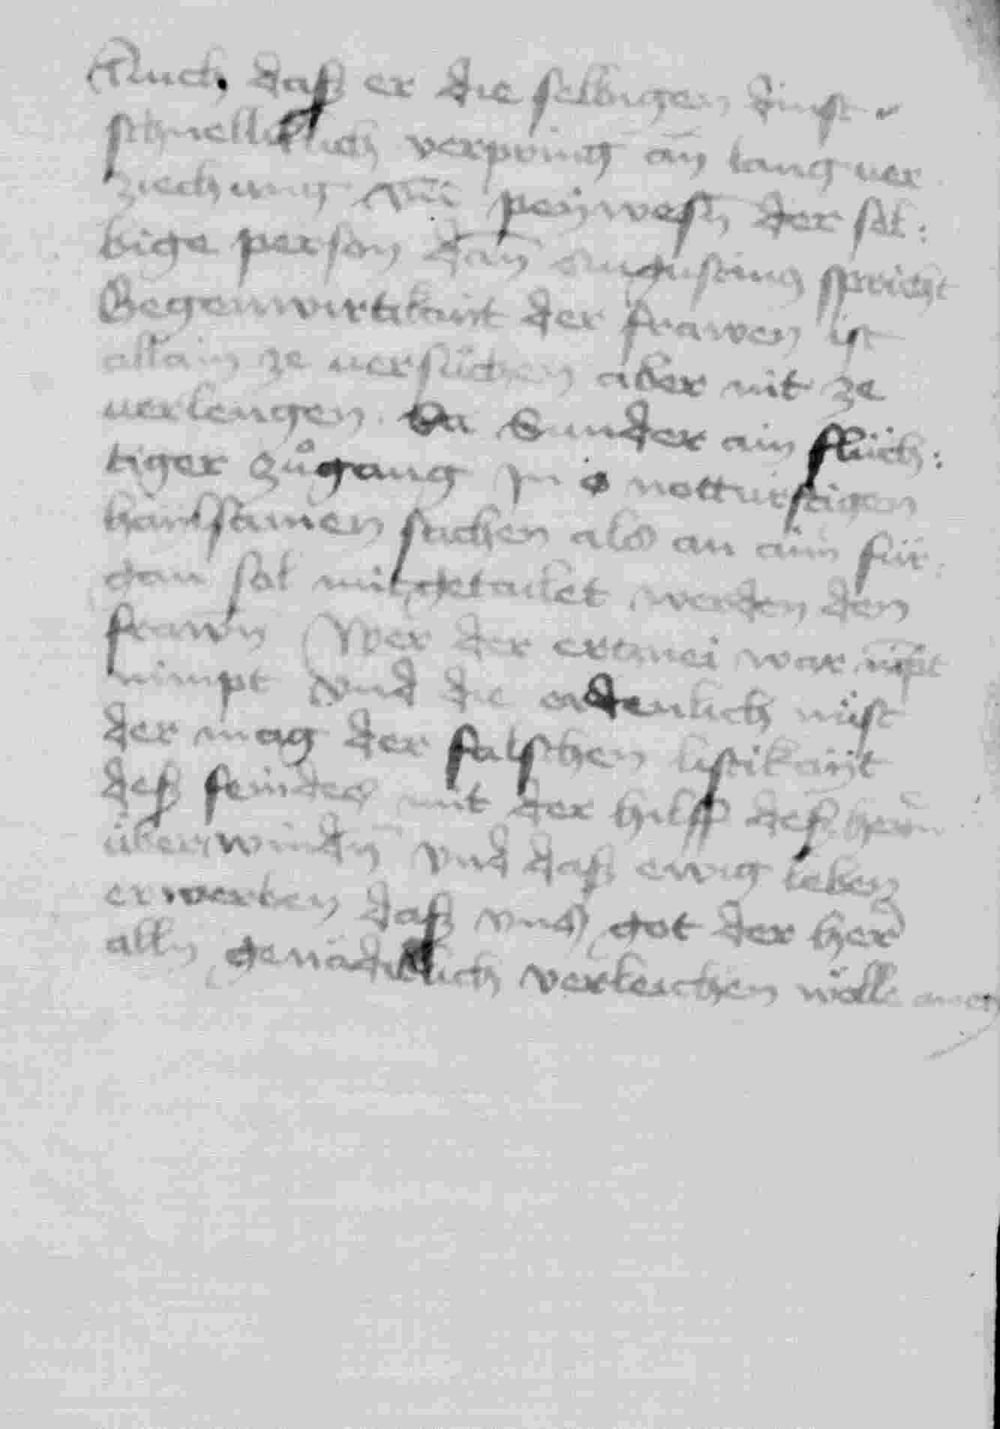 Auch daß er die selbigen dinst
schnelliklich verpring an lang ver
ziechung vnd peywesn der sel:
bige person dan augustinus spricht
Gegenwirtikait der frawen ist
allain ze versuchen aber nit ze
verlengen. Da Sunder ain flüch:
tiger zůgang in notturftigen
hailsamen sachen als an aim für
gan sol mitgetailet werden den
frawn Wer der ertznei war
nimpt vnd die ordenlich nüst
der mag der falschen listikait
deß feindes mit der hilff deß hern
überwindn vnd daß ewig leben
erwerben daß vns got der her
alln genadiklich verleichen wölle amen